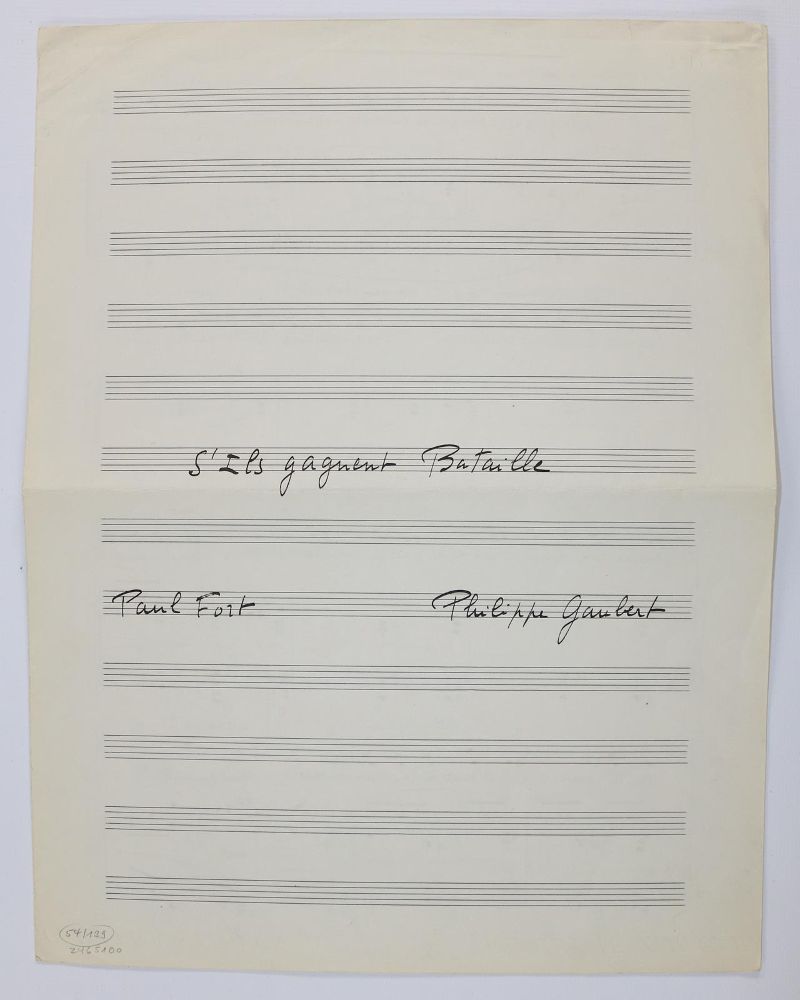 S'Ils gagnent Bataille
Paul Fort Philippe Gaubert
54/199
2465100